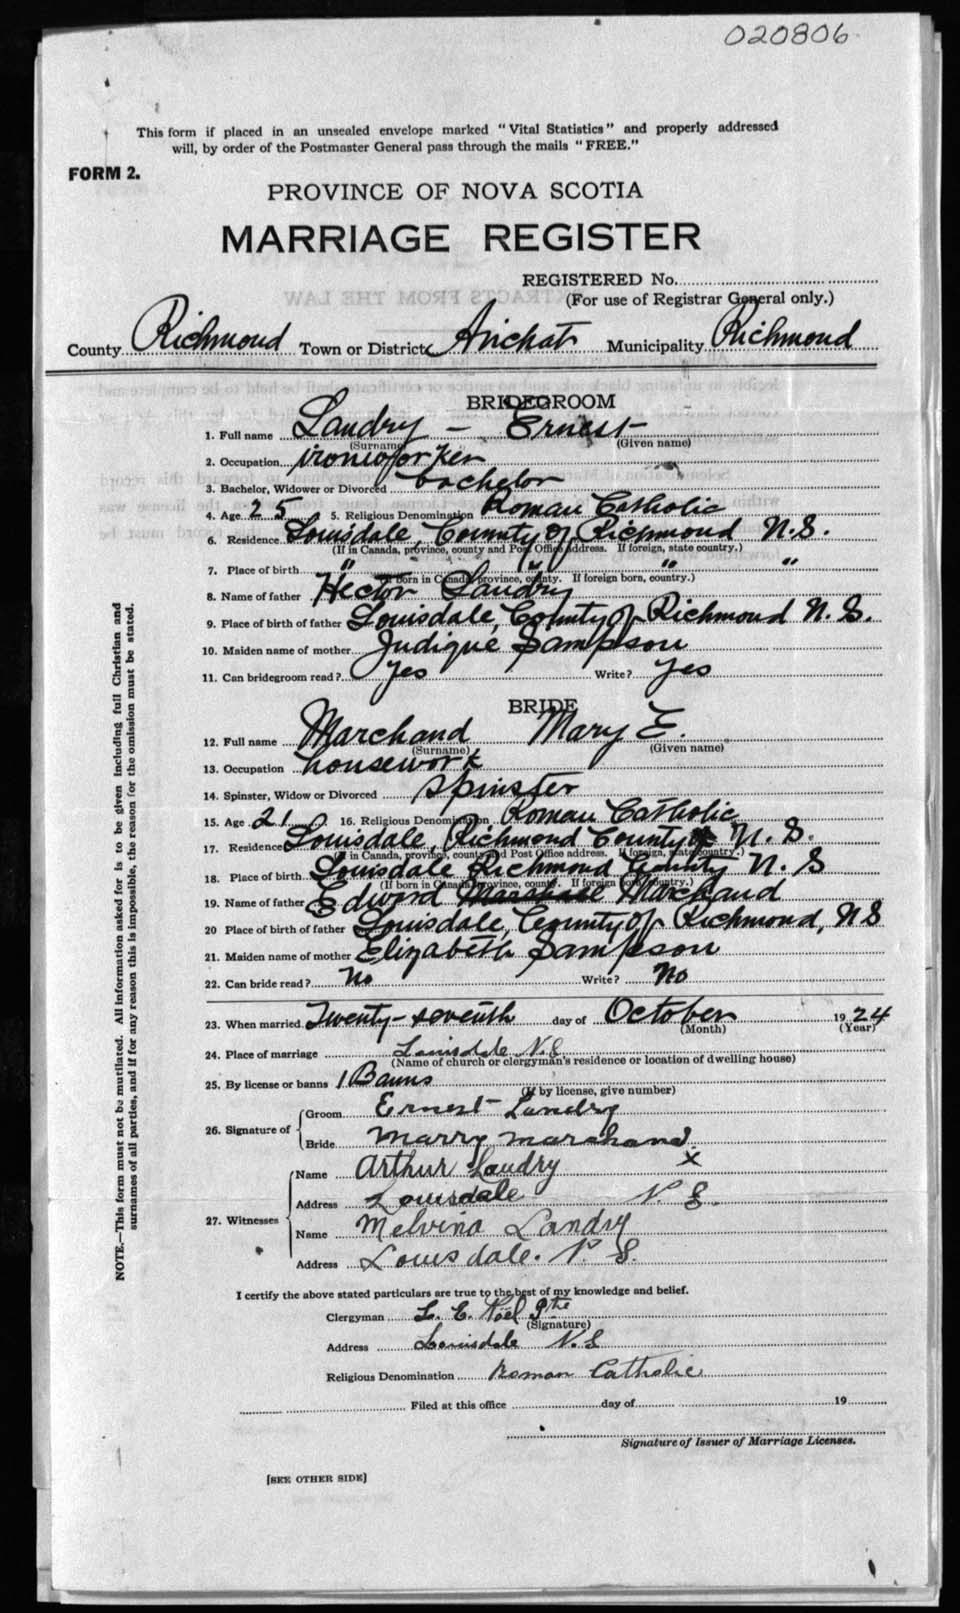 020806
This form if placed in an unsealed envelope marked "Vital Statistics" and properly addressed
will, by order of the Postmaster General pass through the mails "FREE."
FORM 2.
PROVINCE OF NOVA SCOTIA
MARRIAGE REGISTER
REGISTERED No.
(For use of Registrar General only.)
County Richmond Town or District Arichat Municipality Richmond
BRIDEGROOM
1. Full name Landry - Ernest
(Surname) (Given name)
2. Occupation ironworker
3. Bachelor, Widower or Divorced bachelor
4. Age 25 5. Religious Denomination Roman Catholic
6. Residence Louisdale, County of Richmond N.S.
(If in Canada, province, county and Post Office address. If foreign, state country.)
7. Place of birth " " " "
(If born in Canada, province, county. If foreign born, country.)
8. Name of father Hector Landry
9. Place of birth of father Louisdale, County of Richmond N.S.
10. Maiden name of mother Judique Sampson
11. Can bridegroom read? Yes Write? Yes
BRIDE
12. Full name Marchand Mary E.
(Surname) (Given name)
13. Occupation housework
14. Spinster, Widow or Divorced spinster
15. Age 21 16. Religious Denomination Roman Catholic
17. Residence Louisdale, Richmond County N.S.
(If in Canada, province, county and Post Office address. If foreign, state country.)
18. Place of birth Louisdale Richmond County N.S
(If born in Canada province, county. If foreign born, country.)
19. Name of father Edward Marchand
20 Place of birth of father Louisdale, County of Richmond, NS
21. Maiden name of mother Elizabeth Sampson
22. Can bride read? No Write? No
23. When married Twenty-seventh day of October 1924
(Month) (Year)
24. Place of marriage Louisdale N.S
(Name of church or clergyman's residence or location of dwelling house)
25. By license or banns 1 Banns
(If by license, give number)
26. Signature of
Groom Ernest Landry
Bride Marry Marshand
X
27. Witnesses
Name Arthur Landry
Address Louisdale N. S.
Name Melvina Landry
Address Louisdale. N S.
I certify the above stated particulars are true to the best of my knowledge and belief.
Clergyman L. E. Noël Ptre
(Signature)
Address Louisdale N.S
Religious Denomination Roman Catholic
Filed at this office day of 19
Signature of Issuer of Marriage Licenses.
[SEE OTHER SIDE]
NOTE.—This form must not be mutilated. All information asked for is to be given including full Christian and
surnames of all parties, and if for any reason this is impossible, the reason for the omission must be stated.